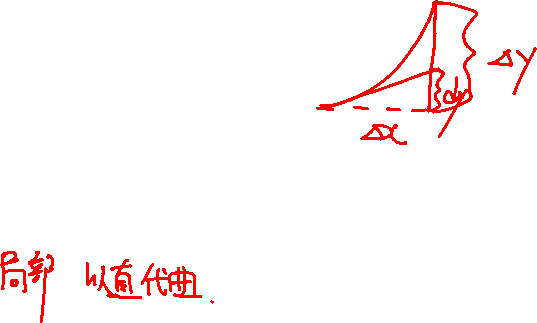 Δy
dy
Δx
局部 以直代曲.